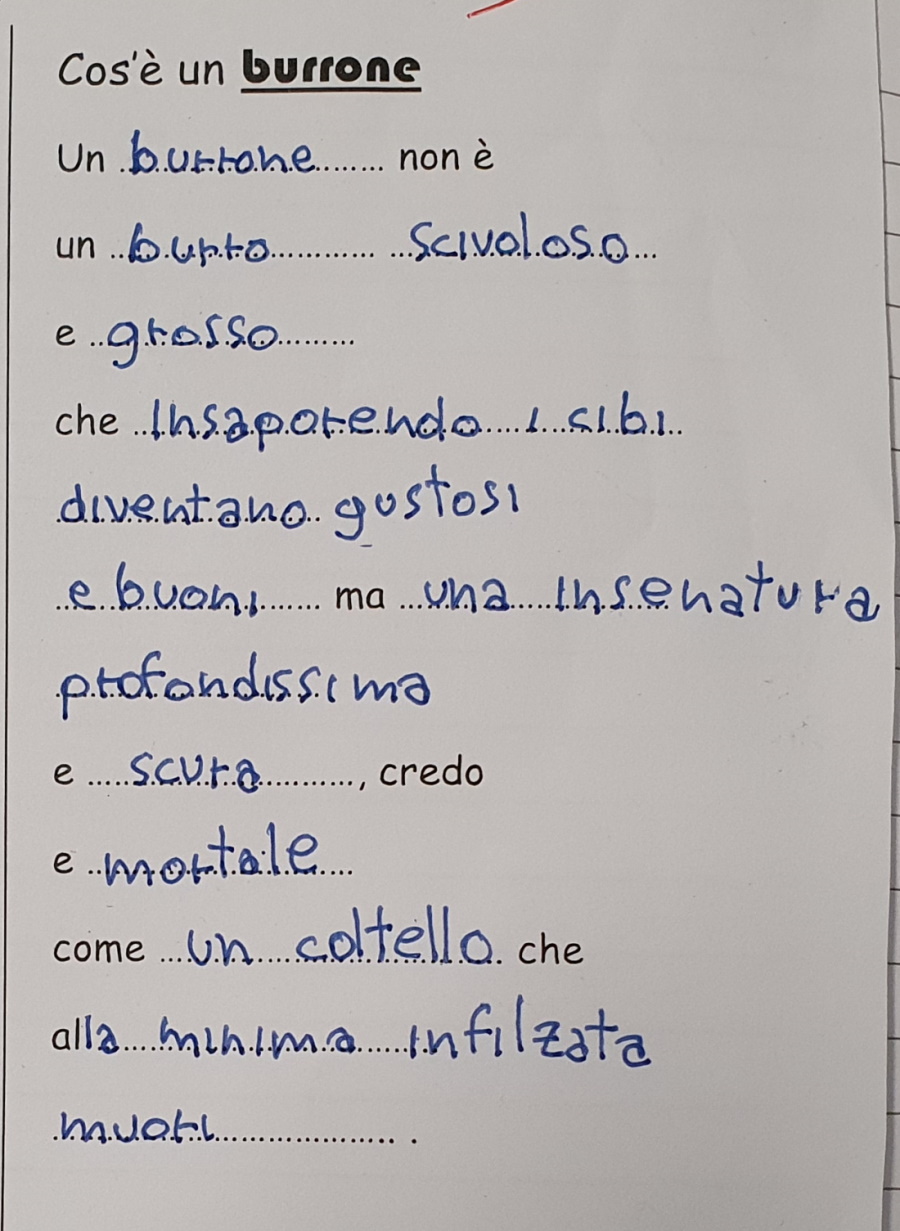 Cos'è un burrone
Un burrone non è
un burro scivoloso
e grosso
che insaporendo i cibi
diventano gustosi
e buoni ma una insenatura
profondissima
e scura, credo
e mortale
come un coltello che
alla minima infilzata
muori.